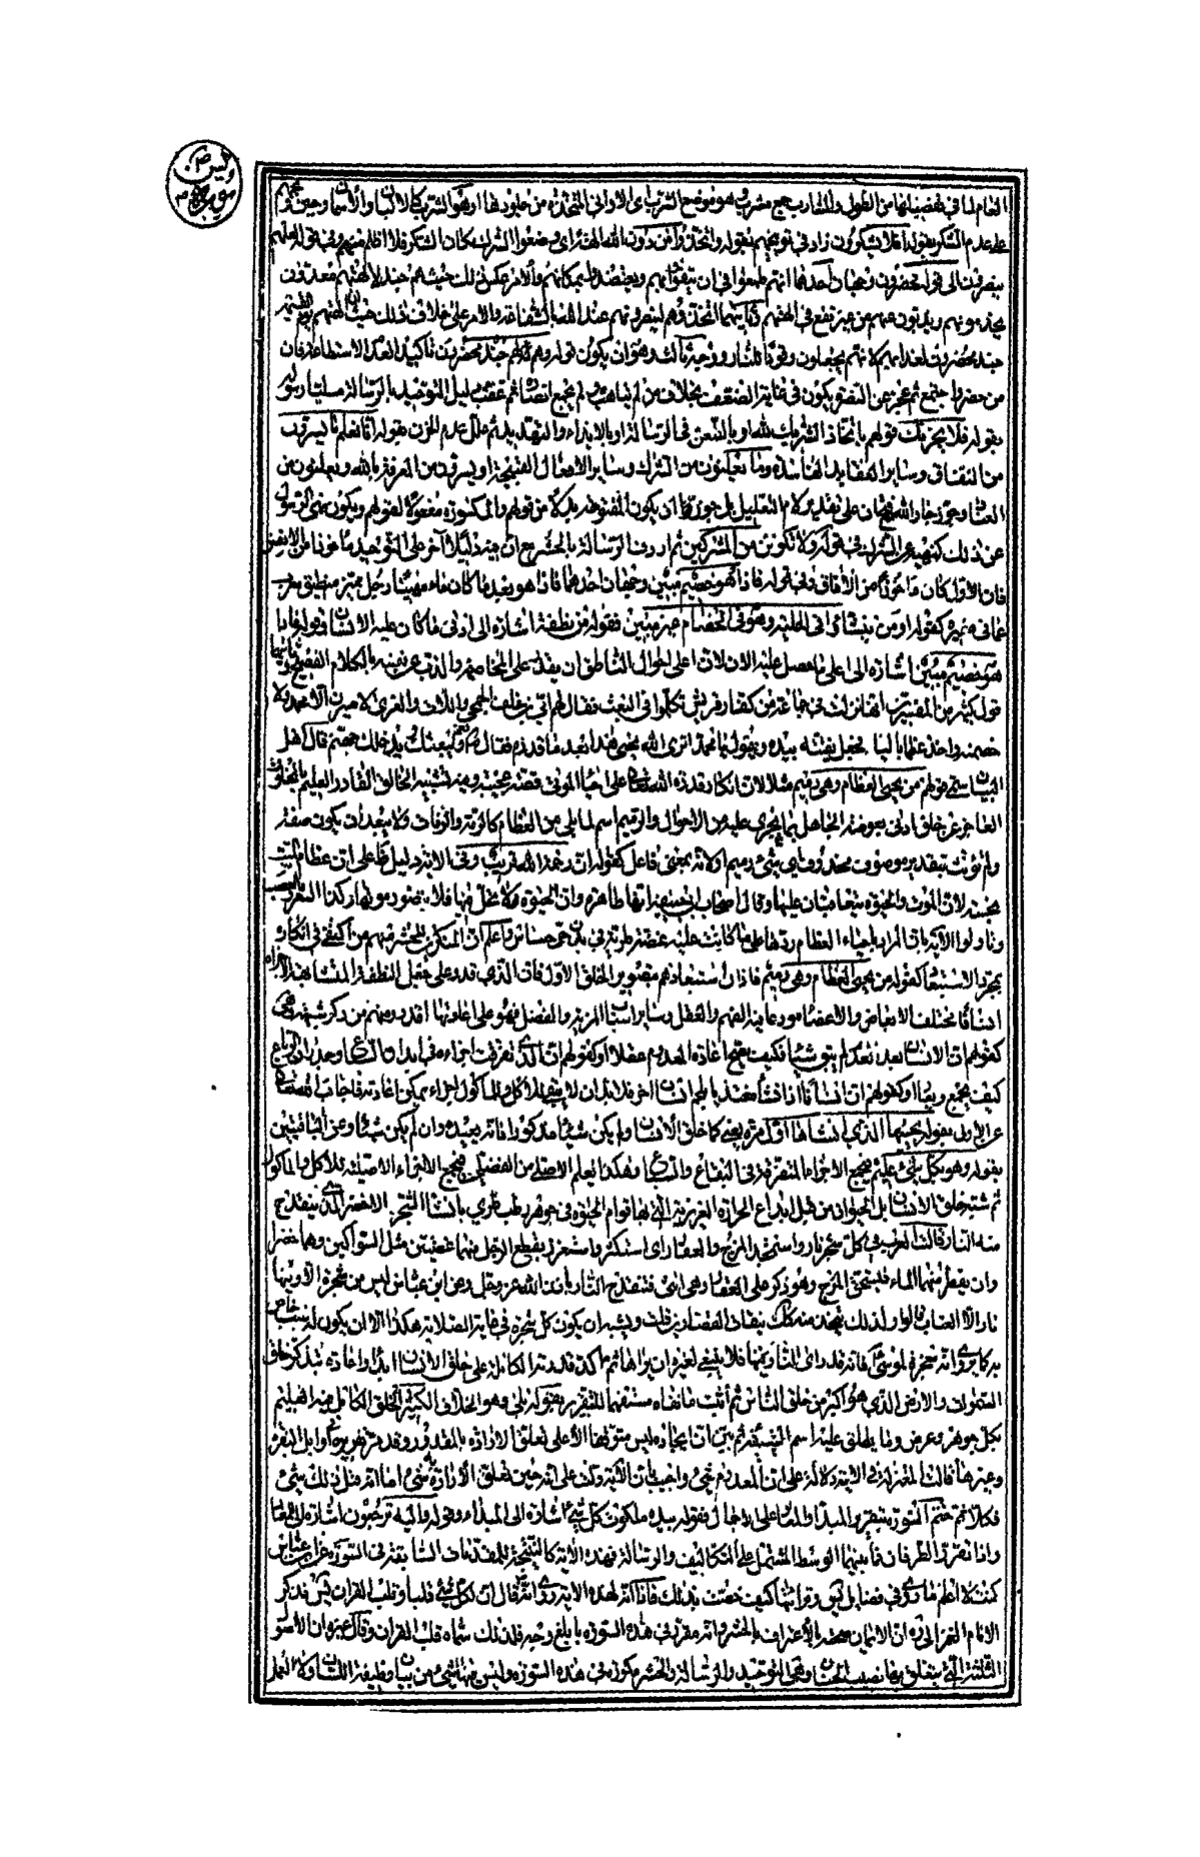 العام لما في تفصيلها من الطول والمشارب جمع مشرب وهو موضع الشرب اى الاوانى المتخذة من جلودها او هو الشرب كالالبان والاسمان وحين
على عدم الشكر بقوله افلا يشكرون زاد في توبيخهم بقوله واتخذوا من دون الله الهة اى وضعوا الشرك مكان الشكر فلا اظلم منهم وفي قوله لعلهم
ينصرون الى قوله محضرون وجهان احدهما انهم طمعوا في ان يتقووا بهم ويعتضدوا بمكانهم والامر عكس ذلك حيث هم جند لالهتهم معدون
يخدمونهم ويذبون عنهم من غير نفع في الهتهم ثانيهما اتخذوهم لينصروهم عند الله بالشفاعة والامر على خلاف ذلك حيث
جند محضرون لعذابهم لانهم يجعلون وقودا للنار ووجه ثالث وهو ان يكون قوله وهم لهم جند محضرون تاكيدا لعدم الاستطاعة فان
من حضر واجتمع ثم عجز عن النصر يكون في غاية الضعف بخلاف من لم يتاهب ولم يجمع انصاره ثم عقب دليل التوحيد بالرسالة مسليا رسوله
بقوله فلا يحزنك قولهم باتخاذ الشريك لله او بالطعن في الرسالة او بالايذاء والتهديد ثم علل عدم الحزن بقوله انا نعلم ما يسرون
من النفاق وسائر العقايد الفاسدة وما يعلنون من الشرك وسائر الافعال القبيحة او يسرون من المعرفة بالله ويعلنون من
العناد وجوز جار الله فتح ان على تقدير لام التعليل بل جوز ان يكون المفتوحة بدلا من قولهم والمكسورة مفعولا لقولهم ويكون نهى الرسول
عن ذلك كنهيه عن الشرك في قوله ولا تكونن من المشركين ثم اردف الرسالة بالحشر مع ان فيه دليلا آخر على التوحيد ماخوذا من الانفس
فان الاول كان ماخوذا من الآفاق وفي قوله فاذا هو خصيم مبين وجهان احدهما فاذا هو بعد ما كان ماء مهينا رجل مميز منطيق معرب
عما في ضميره كقوله اومن ينشأ في الحلية وهو في الخصام غير مبين فقوله من نطفة اشارة الى ادنى ما كان عليه الانسان وقوله فاذا
هو خصيم مبين اشارة الى اعلى ما حصل عليه الان لان اعلى احوال الناطق ان يقدر على المخاصمة والذب عن نفسه بالكلام الفصيح وثانيهما
قول كثير من المفسرين انها نزلت في جماعة من كفار قريش تكلموا في البعث فقال لهم ابي بن خلف الجمحي واللات والعزى لاصيرن الى محمد ولا
خصمنه واخذ عظما باليا فجعل يفتته بيده ويقول يا محمد اترى الله يحيي هذا بعد ما قد رم فقال نعم ويبعثك ويدخلك جهنم قال اهل
البيان سمي قولهم من يحيي العظام وهي رميم مثلا لان انكار قدرة الله تعالى على احياء الموتى قصة عجيبة وفيه تشبيه الخالق القادر العليم بالمخلوق
العاجز عن خلق ادنى بعوضة الجاهل بما يجري عليه من الاحوال والرميم اسم لما بلي من العظام كالرمة والرفات ولا يبعد ان يكون صفة
ولم يؤنث بتقدير موصوف محذوف اي شئ رميم او لانه بمعنى فاعل كقوله ان رحمة الله قريب وفي الاية دليل ظاهر على ان عظام الميت
نجسة لان الموت والحيوة يتعاقبان عليها وقال اصحاب ابي حنيفة انها طاهرة وان الحيوة لا تحل فيها فلا يتصور موتها وكذا الشعر والعصب
وتاولوا الآية بان المراد باحياء العظام ردها على ما كانت عليه غضة طرية في بدن حي حساس واعلم ان المنكرين للحشر منهم من اكتفى في انكاره
بمجرد الاستبعاد كقوله من يحيي العظام وهي رميم فازال استبعادهم بتصوير الخلق الاول فان الذي قدر على جعل النطفة المتشابهة الاجزاء
انسانا مختلف الابعاض والاعضاء مودعا فيه الفهم والعقل وسائر اسباب المزية والفضل فهو على اعادتها اقدر ومنهم من ذكر شبهة وهي
كقولهم ان الانسان بعد العدم لم يبق شيئا فكيف يصح اعادة المعدوم عقلا او كقولهم ان الذي تفرقت اجزاءه في ابدان السباع وجدران الرباع
كيف يجمع ويعاد او كقولهم ان انسانا اذا نشأ مغتذيا بلحم انسان اخر فلا بد ان لا يبقى للآكل او للماكول اجزاء يمكن اعادته فاجاب الله تعالى
عن الاول بقوله يحييها الذي انشأها اول مرة يعنى كما خلق الانسان ولم يكن شيئا مذكورا فانه يعيده وان لم يكن شيئا وعن الباقيتين
بقوله وهو بكل خلق عليم فيجمع الاجزاء المتفرقة في البقاع والسباع وهكذا يعلم الاصلي من الفضلي فيجمع الاجزاء الاصلية للآكل والماكول
ثم شبه خلق الانسان بل الحيوان من قبل ابداع الحرارة الغريزية التي بها قوام الحيوة في جوهر رطب طري بانشاء الشجر الاخضر الذي ينقدح
منه النار قالت العرب في كل شجر نار واستمجد المرخ والعفار اى استكثر واستغزر يقطع الرجل منهما غصنين مثل السواكين وهما خضراوان
وان يقطر منهما الماء فيسحق المرخ وهو ذكر على العفار وهي انثى فتنقدح النار باذن الله عز وجل وعن ابن عباس ليس من شجرة الا وفيها
نار الا العناب قالوا ولذلك يتخذ منه كذينقات القصارين قلت ويشبه ان يكون كل شجرة في غاية الصلابة هكذا الا ان يكون له سبب خاص
به كما يروى انه شجرة لموسى فانه قد راى النار فيها فلا ينبغي لغيره ان يراها ثم اكد قدرته الكاملة على خلق الانسان ابداء واعادة بتذكير خلق
السموات والارض الذي هو اكبر من خلق الناس ثم اثبت ما نفاه مستفهما للتقرير بقوله بلى وهو الخلاق الكثير الخلق الكامل فيه العليم
بكل جوهر وعرض وما يطلق عليه اسم الشئ ثم بين ان ايجاده ليس متوقفا الا على تعلق الارادة بالمقدور وقد مر تقريره في اوائل البقرة
وغيرها قالت المعتزلة في الاية دلالة على ان المعدوم شئ واجيب بان الآية دلت على انه حين تعلق الارادة به شئ اما انه قبل ذلك شئ
فكلا ثم ختم السورة بتقرير المبدأ والمعاد على الاجمال فقوله بيده ملكوت كل شئ اشارة الى المبدأ وقوله واليه ترجعون اشارة الى المعاد
واذا تقرر الطرفان فما بينهما الوسط المشتمل على التكاليف والرسالة فهذه الآية كالنتيجة للمقدمات السابقة في السورة عن ابن عباس
كنت لا اعلم ما روى في فضايل يس وقرائتها كيف خصت بذلك فاذا انه لهذه الاية روى انه قال ان لكل شئ قلبا وقلب القران يس فذكر
الامام الغزالي ره ان الايمان صحته بالاعتراف بالحشر وانه مقرر في هذه السورة بابلغ وجه فلذلك سماه قلب القران وقال غيره ان الاصول
الثلثة التي يتعلق بها نصيب الجنان وهي التوحيد والرسالة والحشر مكررة في هذه السورة وليس فيها شئ من بيان وظيفة اللسان ولا العمل